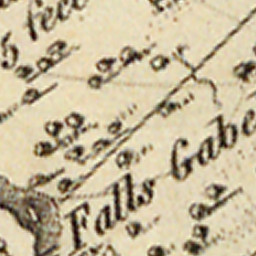 5 feet
Falls Gabe